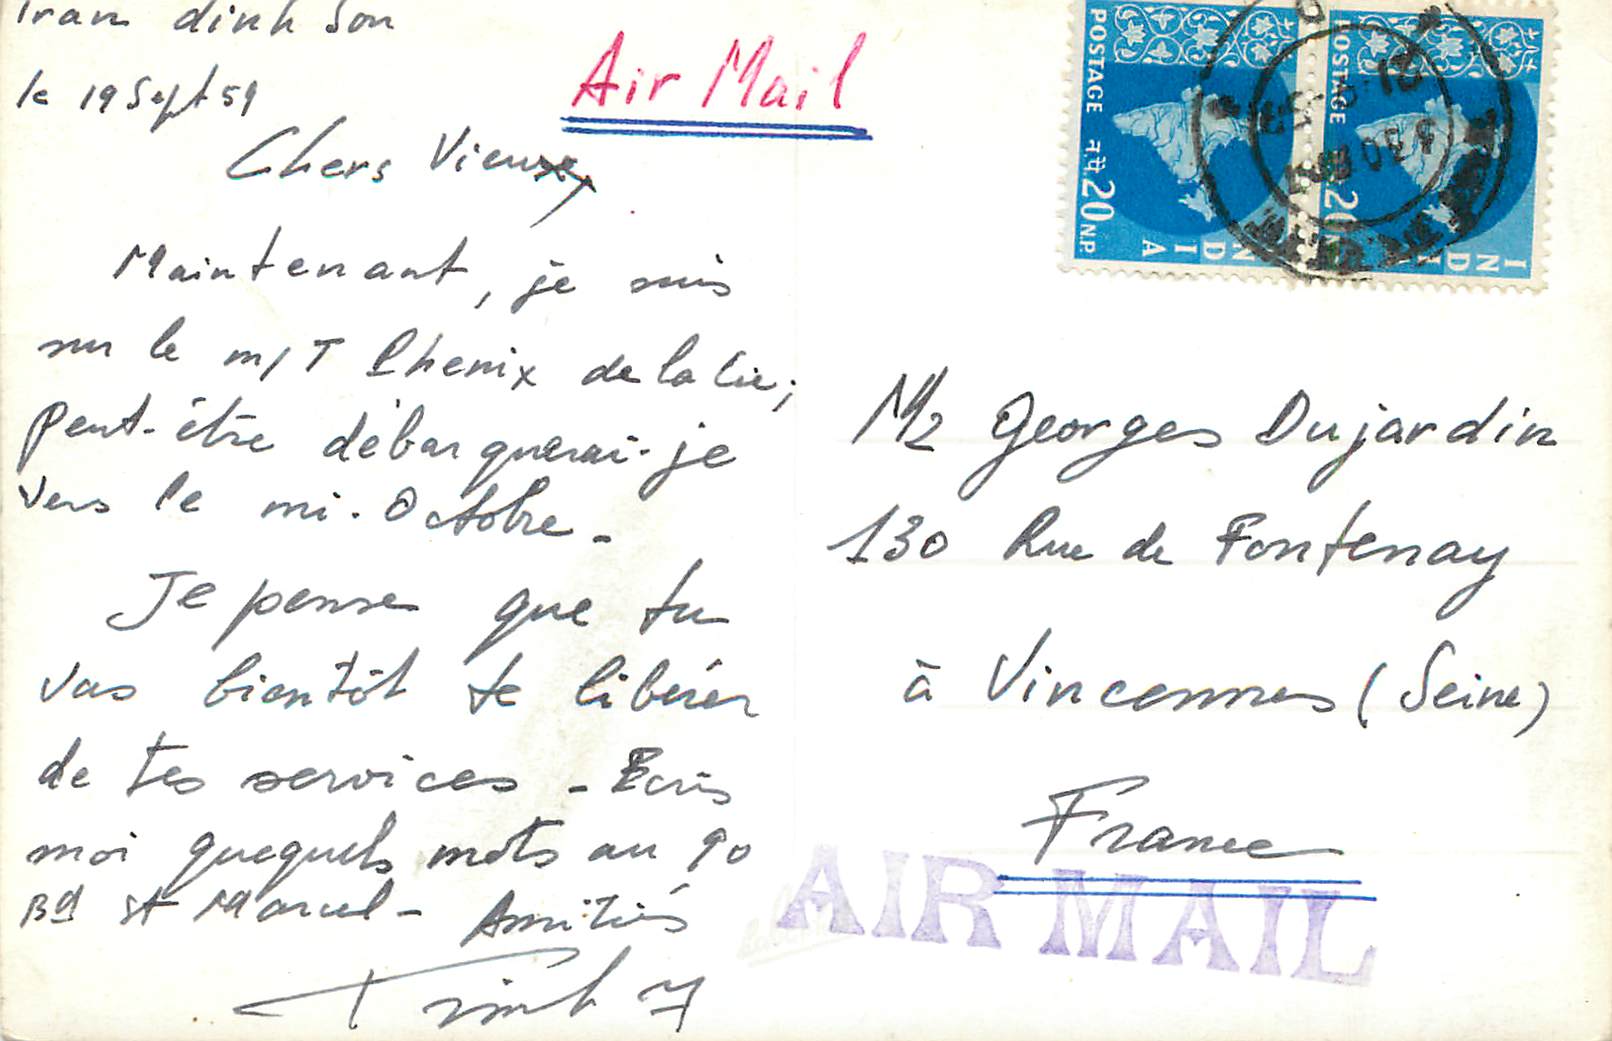 Tran dinh Son
le 19 Sept 59
Air Mail
Chers Vieux,
Maintenant, je suis
sur le m/T Phenix de la Cie;
peut-être débarquerai-je
vers le mi-Octobre_
Je pense que tu
vas bientôt te libérer
de tes services _ Ecris
moi quequels mots au 90
Bd St Marcel _ Amitiés
POSTAGE न.पै. 20 N.P.
INDIA
POSTAGE 20 N
INDI
Mr Georges Dujardin
130 Rue de Fontenay
à Vincennes (Seine)
France
AIR MAIL